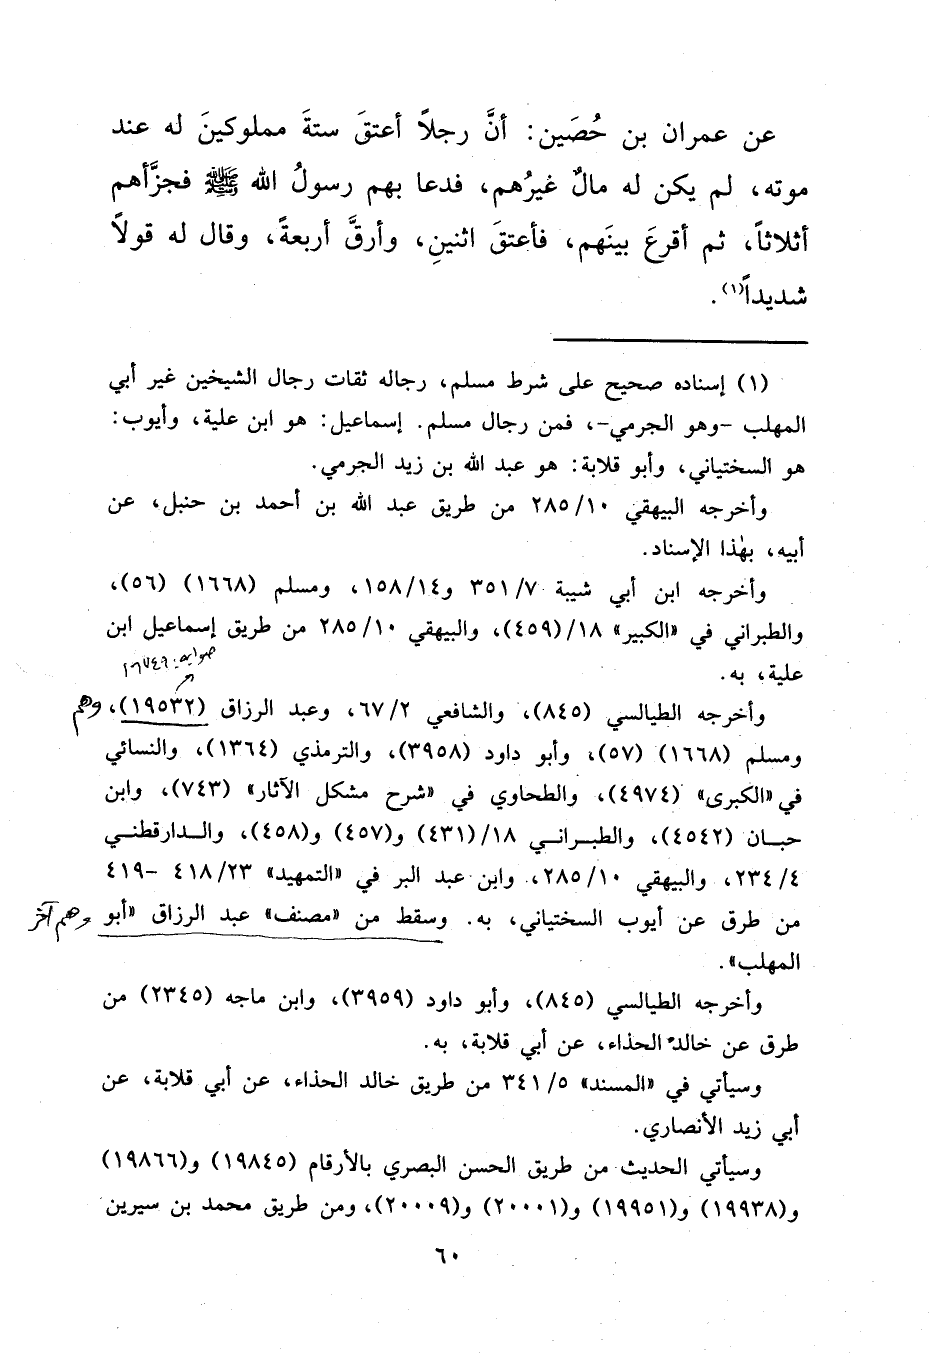 عن عمران بن حُصَين: أنَّ رجلاً أعتقَ ستةَ مملوكينَ له عند
موته، لم يكن له مالٌ غيرُهم، فدعا بهم رسولُ الله ﷺ فجزَّأهم
أثلاثاً، ثم أقرعَ بينَهم، فأعتقَ اثنينِ، وأرقَّ أربعةً، وقال له قولاً
شديداً(١).
(١) إسناده صحيح على شرط مسلم، رجاله ثقات رجال الشيخين غير أبي
المهلب -وهو الجرمي-، فمن رجال مسلم. إسماعيل: هو ابن علية، وأيوب:
هو السختياني، وأبو قلابة: هو عبد الله بن زيد الجرمي.
وأخرجه البيهقي ٢٨٥/١٠ من طريق عبد الله بن أحمد بن حنبل، عن
أبيه، بهٰذا الإسناد.
وأخرجه ابن أبي شيبة ٣٥١/٧ و١٥٨/١٤، ومسلم (١٦٦٨) (٥٦)،
والطبراني في «الكبير» ١٨/(٤٥٩)، والبيهقي ٢٨٥/١٠ من طريق إسماعيل ابن
علية، به.
صوابه: ١٦٧٤٩
وأخرجه الطيالسي (٨٤٥)، والشافعي ٦٧/٢، وعبد الرزاق (١٩٥٣٢)، وهم
ومسلم (١٦٦٨) (٥٧)، وأبو داود (٣٩٥٨)، والترمذي (١٣٦٤)، والنسائي
في «الكبرى» (٤٩٧٤)، والطحاوي في «شرح مشكل الآثار» (٧٤٣)، وابن
حبـان (٤٥٤٢)، والطبـرانـي ١٨/(٤٣١) و(٤٥٧) و(٤٥٨)، والـدارقطنـي
٢٣٤/٤، والبيهقي ٢٨٥/١٠، وابن عبد البر في «التمهيد» ٤١٨/٢٣ -٤١٩
من طرق عن أيوب السختياني، به. وسقط من «مصنف» عبد الرزاق «أبو وهم آخر
المهلب».
وأخرجه الطيالسي (٨٤٥)، وأبو داود (٣٩٥٩)، وابن ماجه (٢٣٤٥) من
طرق عن خالد الحذاء، عن أبي قلابة، به.
وسيأتي في «المسند» ٣٤١/٥ من طريق خالد الحذاء، عن أبي قلابة، عن
أبي زيد الأنصاري.
وسيأتي الحديث من طريق الحسن البصري بالأرقام (١٩٨٤٥) و(١٩٨٦٦)
و(١٩٩٣٨) و(١٩٩٥١) و(٢٠٠٠١) و(٢٠٠٠٩)، ومن طريق محمد بن سيرين
٦٠